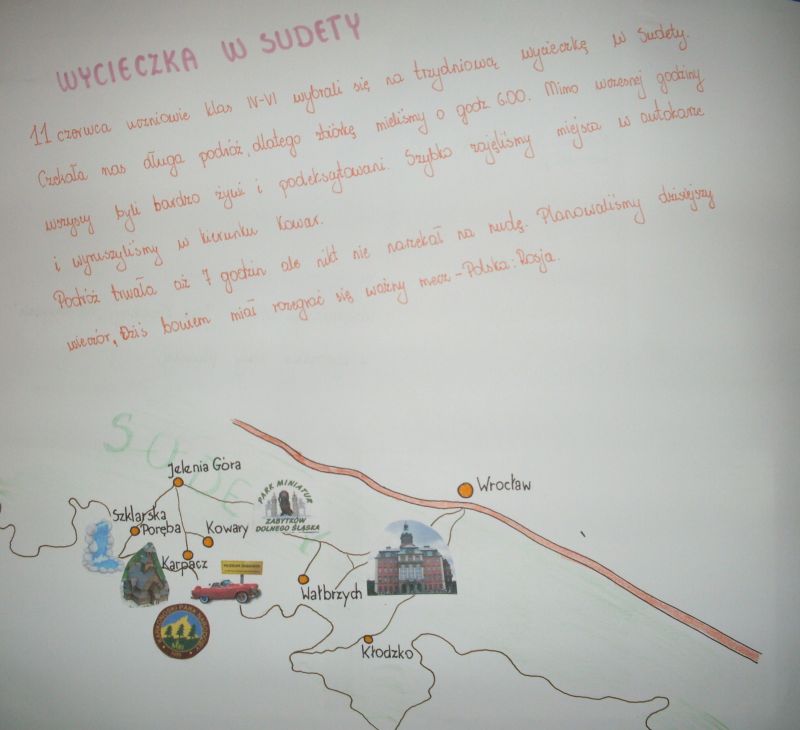 WYCIECZKA W SUDETY
11 czerwca uczniowie klas IV-VI wybrali się na trzydniową wycieczkę w Sudety.
Czekała nas długa podróż, dlatego zbiórkę mieliśmy o godz. 6.00. Mimo wczesnej godziny
wszyscy byli bardzo żywi i podekscytowani. Szybko zajęliśmy miejsca w autokarze
i wyruszyliśmy w kierunku Kowar.
Podróż trwała aż 7 godzin ale nikt nie narzekał na nudę. Planowaliśmy dzisiejszy
wieczór, Dziś bowiem miał rozegrać się ważny mecz - Polska : Rosja.
SUDETY
Jelenia Góra
PARK MINIATUR
ZABYTKÓW
DOLNEGO ŚLĄSKA
Wrocław
Szklarska
Poręba
Kowary
Karpacz
Wałbrzych
KARKONOSKI PARK NARODOWY
Kłodzko